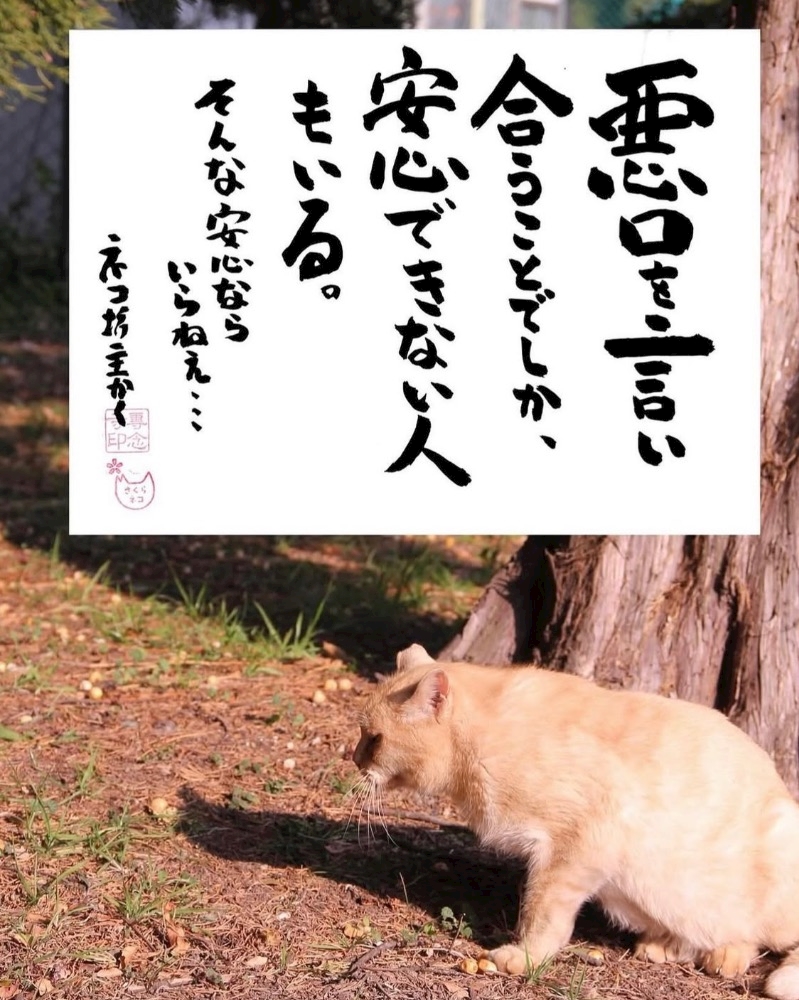 悪口を言い
合うことでしか、
安心できない人
もいる。
そんな安心なら
いらねえ…
ネコ坊主かく
専念
寺印
さくら
ネコ